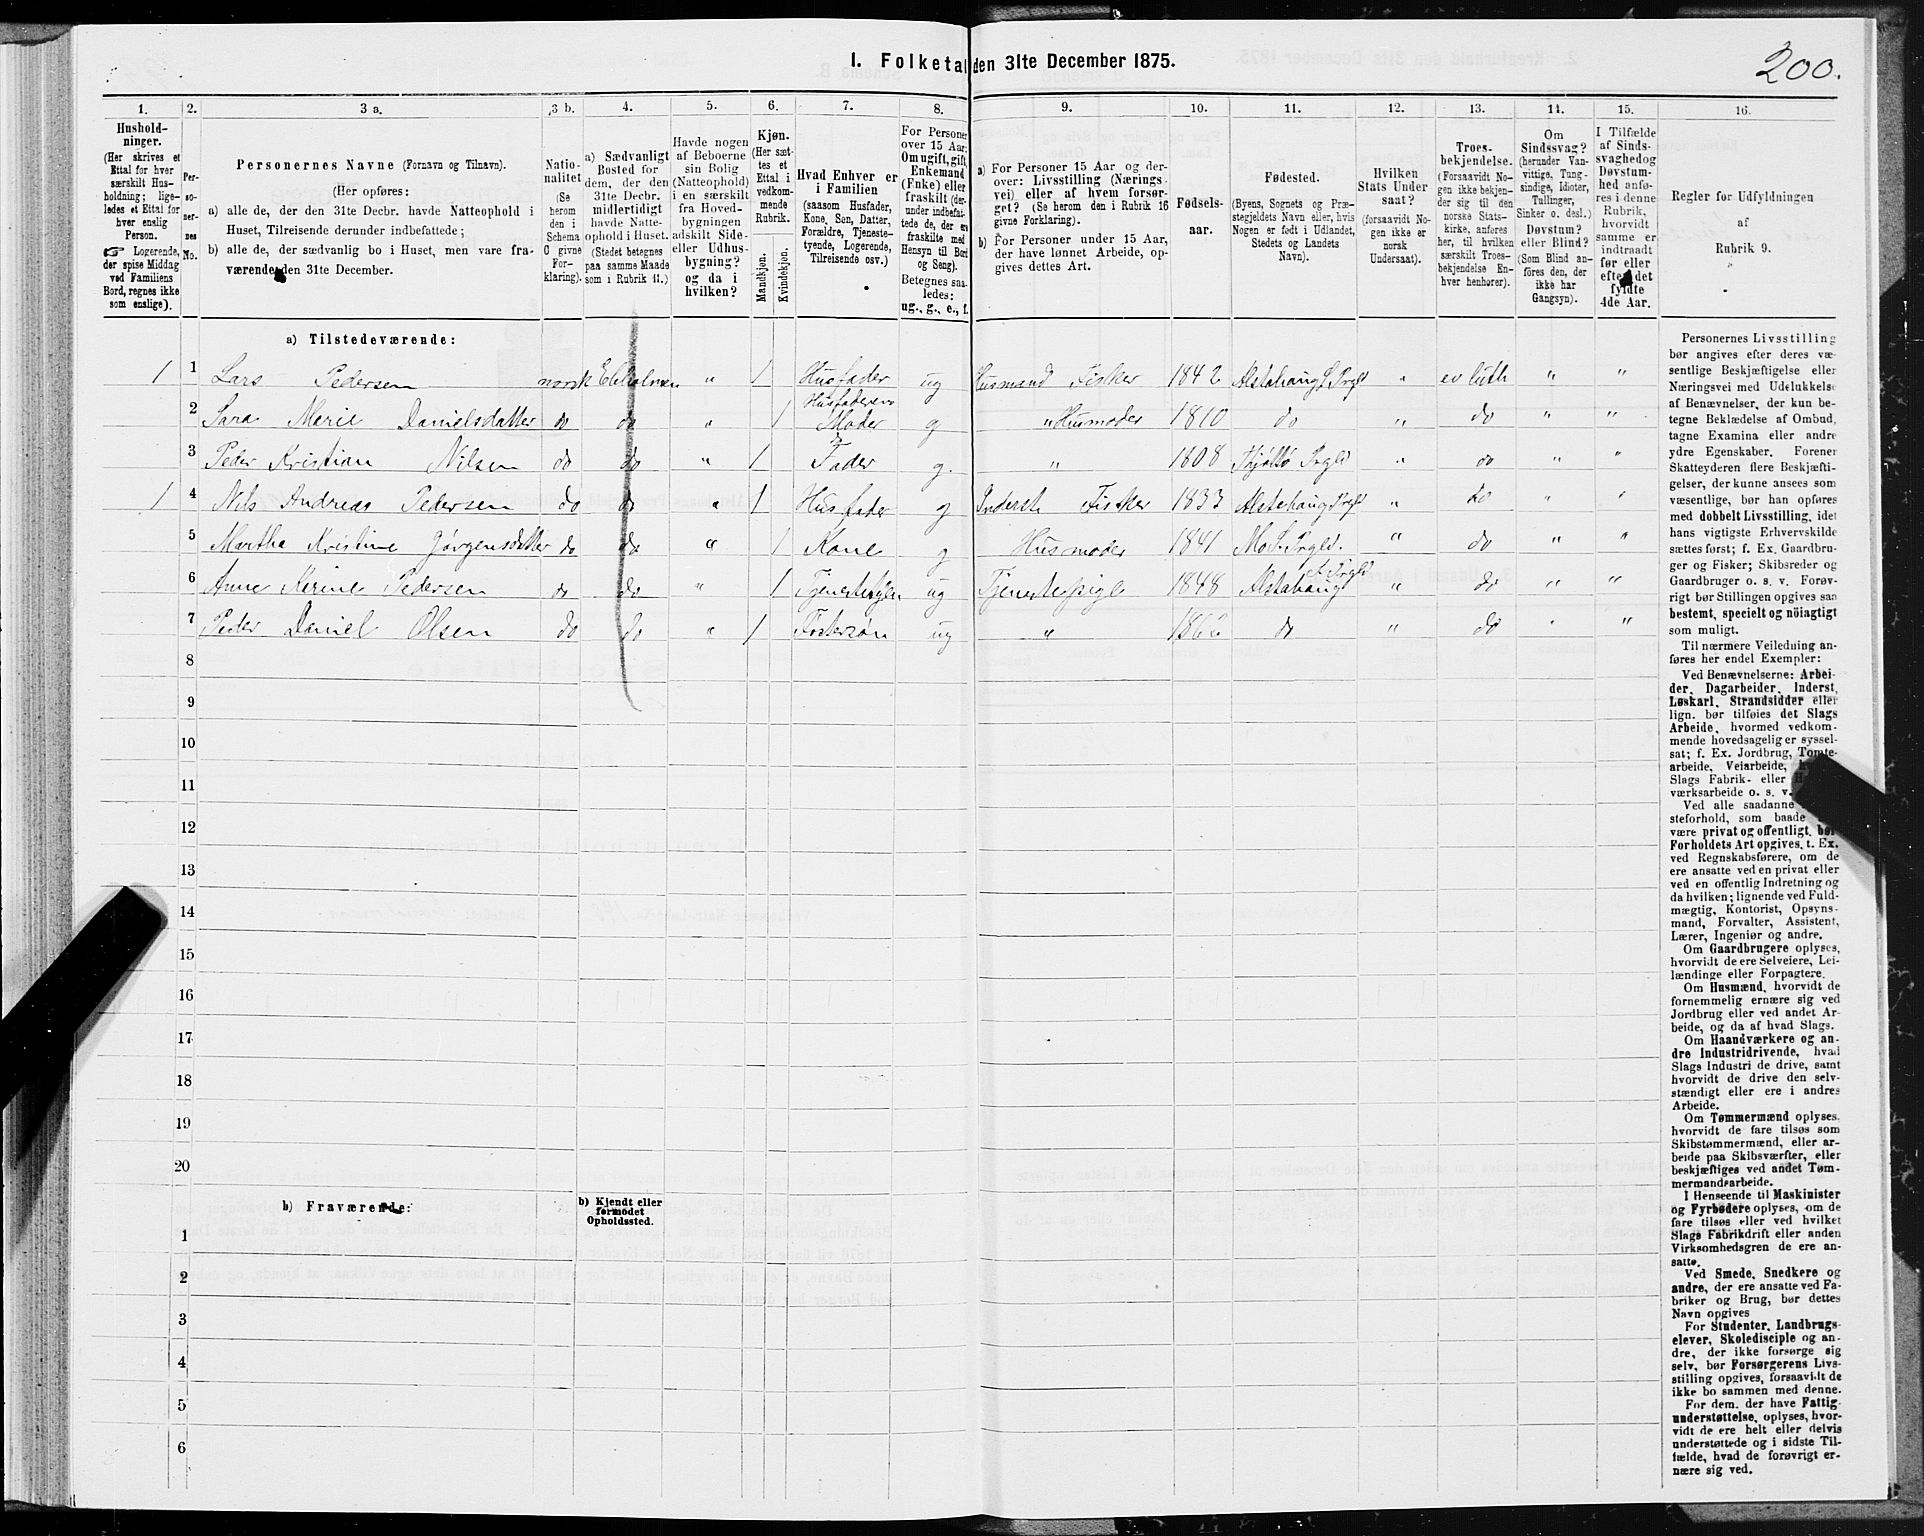 I. Folketal den 31te December 1875.
200.
1. 2. 3 a. 3 b. 4. 5. 6. 7. 8. 9. 10. 11. 12. 13. 14. 15. 16.
Husholdninger. (Her skrives et Ettal for hver særskilt Husholdning; ligeledes et Ettal for hver enslig Person. Logerende, der spise Middag ved Familiens Bord, regnes ikke som enslige).
Personernes No.
Personernes Navne (Fornavn og Tilnavn).
(Her opføres:
a) alle de, der den 31te Decbr. havde Natteophold i Huset, Tilreisende derunder indbefattede;
b) alle de, der sædvanlig bo i Huset, men vare fraværende den 31te December.
Nationalitet (Se herom den i Schema G givne Forklaring).
a) Sædvanligt Bosted for dem, der den 31te Decbr. midlertidigt havde Natteophold i Huset. (Stedet betegnes paa samme Maade som i Rubrik 11.)
Havde nogen af Beboerne sin Bolig (Natteophold) i en særskilt fra Hovedbygningen adskilt Side- eller Udhusbygning? og da i hvilken?
Kjøn. (Her sættes et Ettal i vedkommende Rubrik.
Mandkjøn. Kvindekjøn.
Hvad Enhver er i Familien (saasom Husfader, Kone, Søn, Datter, Forældre, Tjenestetyende, Logerende, Tilreisende osv.)
For Personer over 15 Aar: Om ugift, gift, Enkemand (Enke) eller fraskilt (derunder indbefattede de, der ere fraskilte med Hensyn til Bord og Seng). Betegnes saaledes: ug., g., e., f.
a) For Personer 15 Aar og derover: Livsstilling (Næringsvei) eller af hvem forsørget? (Se herom den i Rubrik 16 givne Forklaring).
b) For Personer under 15 Aar, der have lønnet Arbeide, opgives dettes Art.
Fødselsaar.
Fødested. (Byens, Sognets og Præstegjeldets Navn eller, hvis Nogen er født i Udlandet, Stedets og Landets Navn).
Hvilken Stats Undersaat? (forsaavidt Nogen ikke er norsk Undersaat).
Troesbekjendelse. (Forsaavidt Nogen ikke bekjender sig til den norske Statskirke, anføres her, til hvilken særskilt Troesbekjendelse Enhver henhører).
Om Sindssvag? (herunder Vanvittige, Tungsindige, Idioter, Tullinger, Sinker o. desl.) Døvstum? eller Blind? (Som Blind anføres den, der ikke har Gangsyn).
I Tilfælde af Sindssvaghed og Døvstumhed anføres i denne Rubrik, hvorvidt samme er indtraadt før eller efter det fyldte 4de Aar.
Regler for Udfyldningen af Rubrik 9.
a) Tilstedeværende:
1 1 Lars Pedersen norsk " 1 Husfader ug Husmand Fisker 1842 " ev luth " "
2 Sara Marie Danielsdatter do do " 1 Husfaderens Moder g " Husmoder 1810 do " do " "
3 Peder Kristian Nilsen do do " 1 Fader g. " 1808 " do " "
1 4 Nils Andreas Pedersen do do " 1 Husfader g Inderst Fisker 1833 " do " "
5 Martha Kristine Jørgensdatter do do " 1 Kone g Husmoder 1841 " do " "
6 Anne Merine Pedersen do do " 1 ug Tjenestepige 1848 " do " "
7 Peder Daniel Olsen do do " 1 Fostersøn ug " do " do " "
8
9
10
11
12
13
14
15
16
17
18
19
20
b) Fraværende: b) Kjendt eller formodet Opholdssted.
1
2
3
4
5
6
Personernes Livsstilling
bør angives efter deres væ-
sentlige Beskjæftigelse eller
Næringsvei med Udelukkelse
af Benævnelser, der kun be-
tegne Beklædelse af Ombud,
tagne Examina eller andre
ydre Egenskaber. Forener
Skatteyderen flere Beskjæfti-
gelser, der kunne ansees som
væsentlige, bør han opføres
med dobbelt Livsstilling, idet
hans vigtigste Erhvervskilde
sættes først; f. Ex. Gaardbru-
ger og Fisker; Skibsreder og
Gaardbruger o. s. v. Forøv-
rigt bør Stillingen opgives saa
bestemt, specielt og nöiagtigt
som muligt.
Til nærmere Veiledning an-
føres her endel Exempler:
Ved Benævnelserne: Arbei-
der, Dagarbeider, Inderst,
Løskarl, Strandsidder eller
lign. bør tilføies det Slags
Arbeide, hvormed vedkom-
mende hovedsagelig er syssel-
sat; f. Ex. Jordbrug, Tomte-
arbeide, Veiarbeide,
Slags Fabrik- eller
værksarbeide o. s. v.
Ved alle saadanne
steforhold, som baade
være privat og offentligt, bør
Forholdets Art opgives, t. Ex.
ved Regnskabsførere, om de
ere ansatte ved en privat eller
ved en offentlig Indretning og
da hvilken; lignende ved Fuld-
mægtig, Kontorist, Opsyns-
mand, Forvalter, Assistent,
Lærer, Ingeniør og andre.
Om Gaardbrugere oplyses,
hvorvidt de ere Selveiere, Lei-
lændinge eller Forpagtere.
Om Husmænd, hvorvidt de
fornemmelig ernære sig ved
Jordbrug eller ved andet Ar-
beide, og da af hvad Slags.
Om Haandværkere og an-
dre Industridrivende, hvad
Slags Industri de drive, samt
hvorvidt de drive den selv-
stændigt eller ere i andres
Arbeide.
Om Tømmermænd oplyses,
hvorvidt de fare tilsøs som
Skibstømmermænd, eller ar-
beide paa Skibsværfter, eller
beskjæftiges ved andet Tøm-
mermandsarbeide.
I Henseende til Maskinister
og Fyrbødere oplyses, om de
fare tilsøs eller ved hvilket
Slags Fabrikdrift eller anden
Virksomhedsgren de ere an-
satte.
Ved Smede, Snedkere og
andre, der ere ansatte ved Fa-
briker og Brug, bør dettes
Navn opgives
For Studenter, Landbrugs-
elever, Skoledisciple og an-
dre, der ikke forsørge sig
selv, bør Forsørgerens Livs-
stilling opgives, forsaavidt de
ikke bo sammen med denne.
For dem, der have Fattig-
understøttelse, oplyses, hvor-
vidt de ere helt eller delvis
understøttede og i sidste Til-
fælde, hvad de forøvrigt er-
nære sig ved.